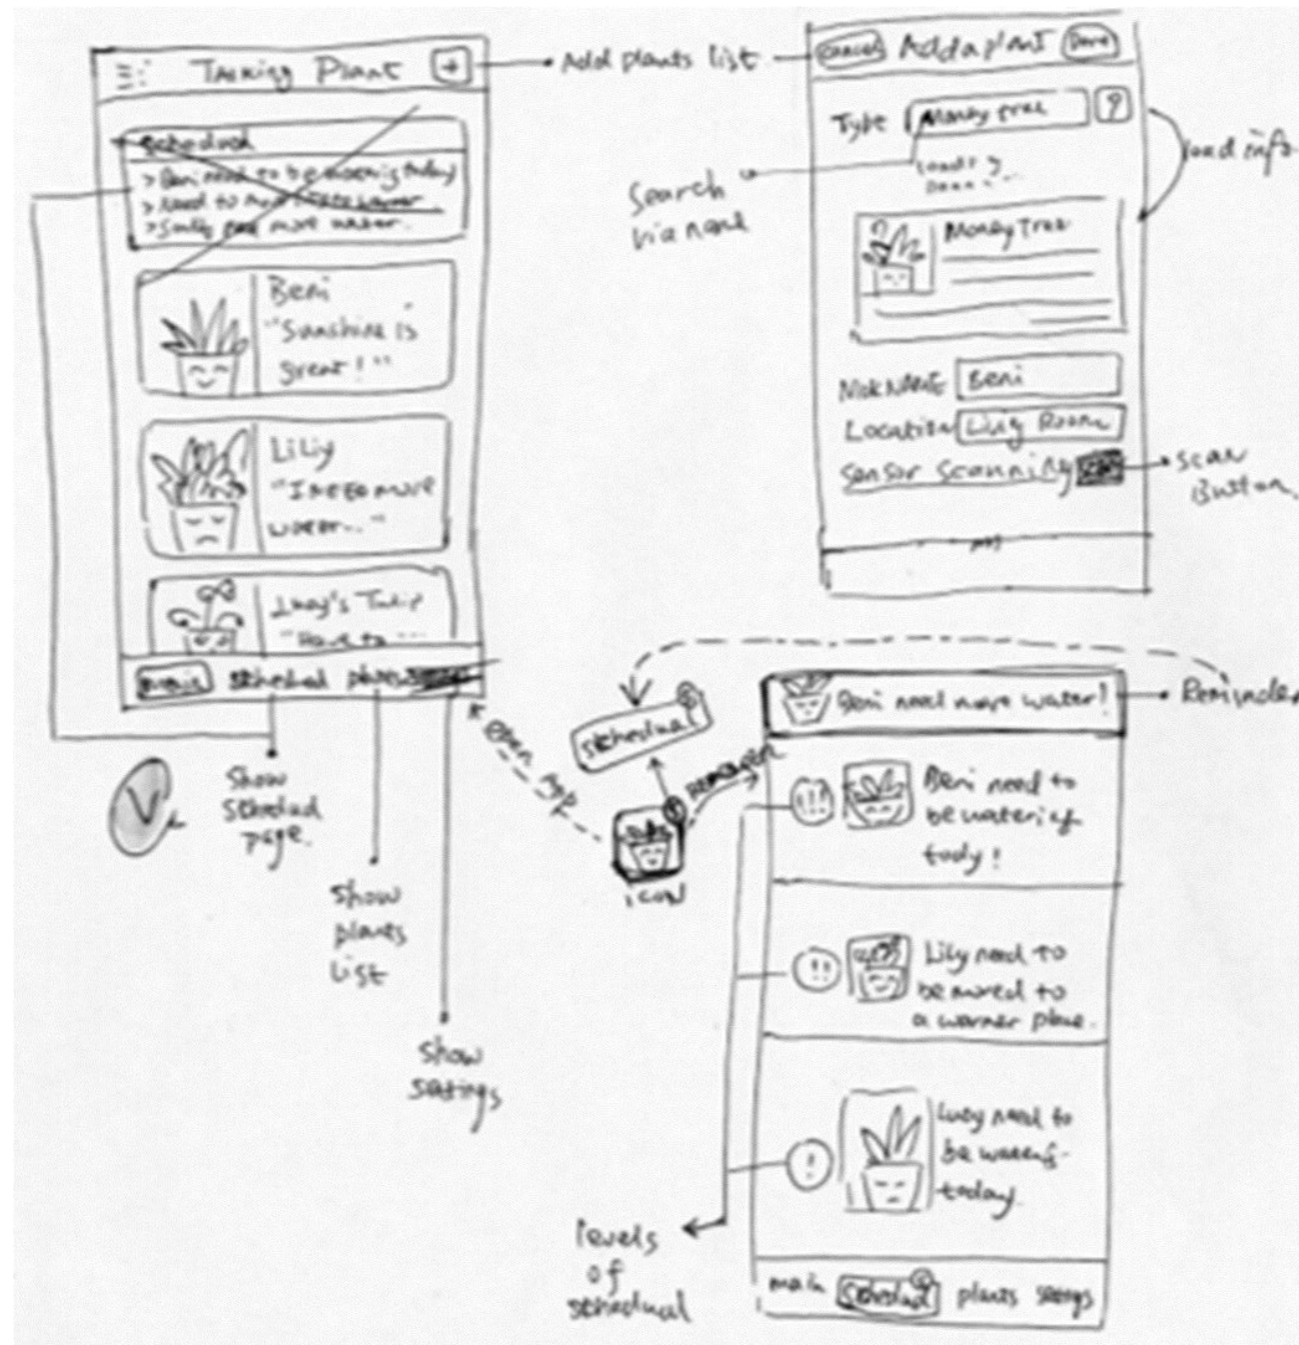 Talking Plant +
Scheduel
> Beni need to be watering today
> Need to
> more water.
Beni
"Sunshine is
great!"
LiLiy
"I need more
water..."
Lucy's Tulip
"Have to ...
main Schedual plants
Show
Schedual
page.
Show
plants
List
Show
settings
V
Add plants list
Cancel Add a plant Done
Type Money tree ?
Loading
Search
via name
load info
Money Tree
NickNAME Beni
Location Living Room
Sensor Scanning
Scan
Button
open app
Schedual
icon
Reminder
Beni need more water!
Reminder
!!! Beni need to
be watering
tody!
!! Lily need to
be moved to
a warmer place.
! Lucy need to
be watering
today.
levels
of
Schedual
main Schedual plants settings